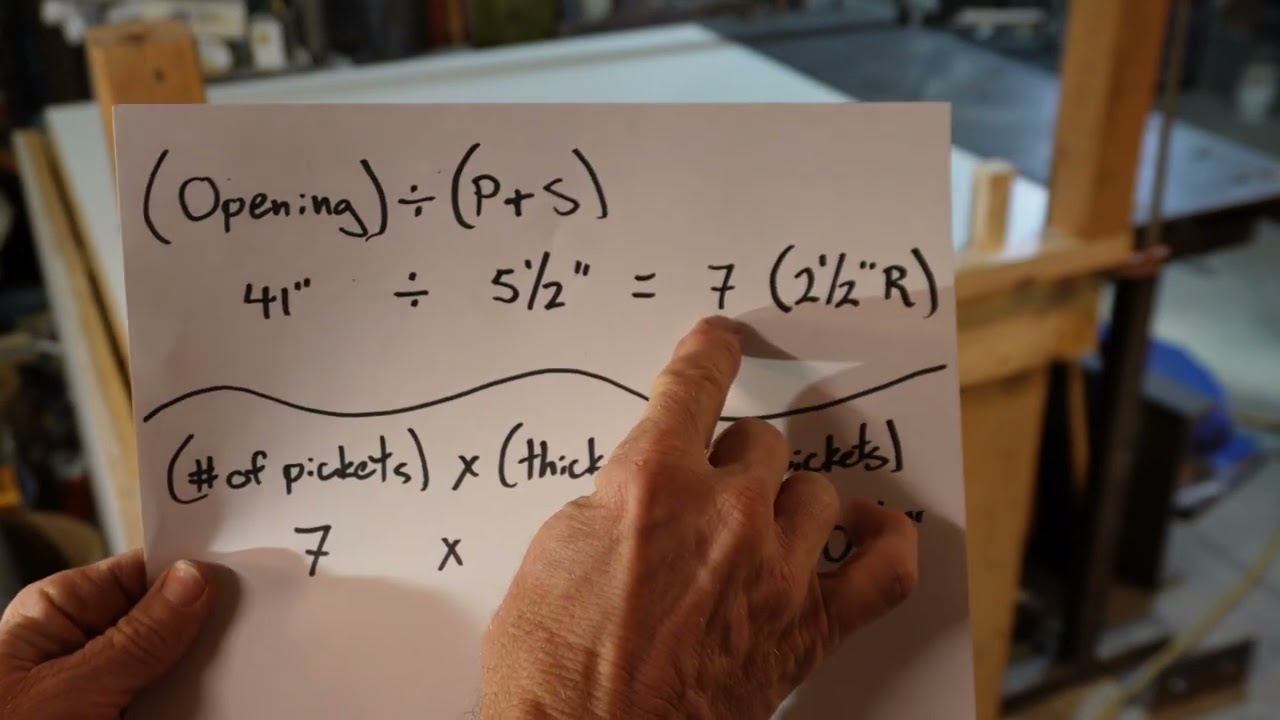 (Opening) ÷ (P+S)
41" ÷ 5 1/2" = 7 (2 1/2" R)
(# of pickets) x (thick ickets)
7 x 0